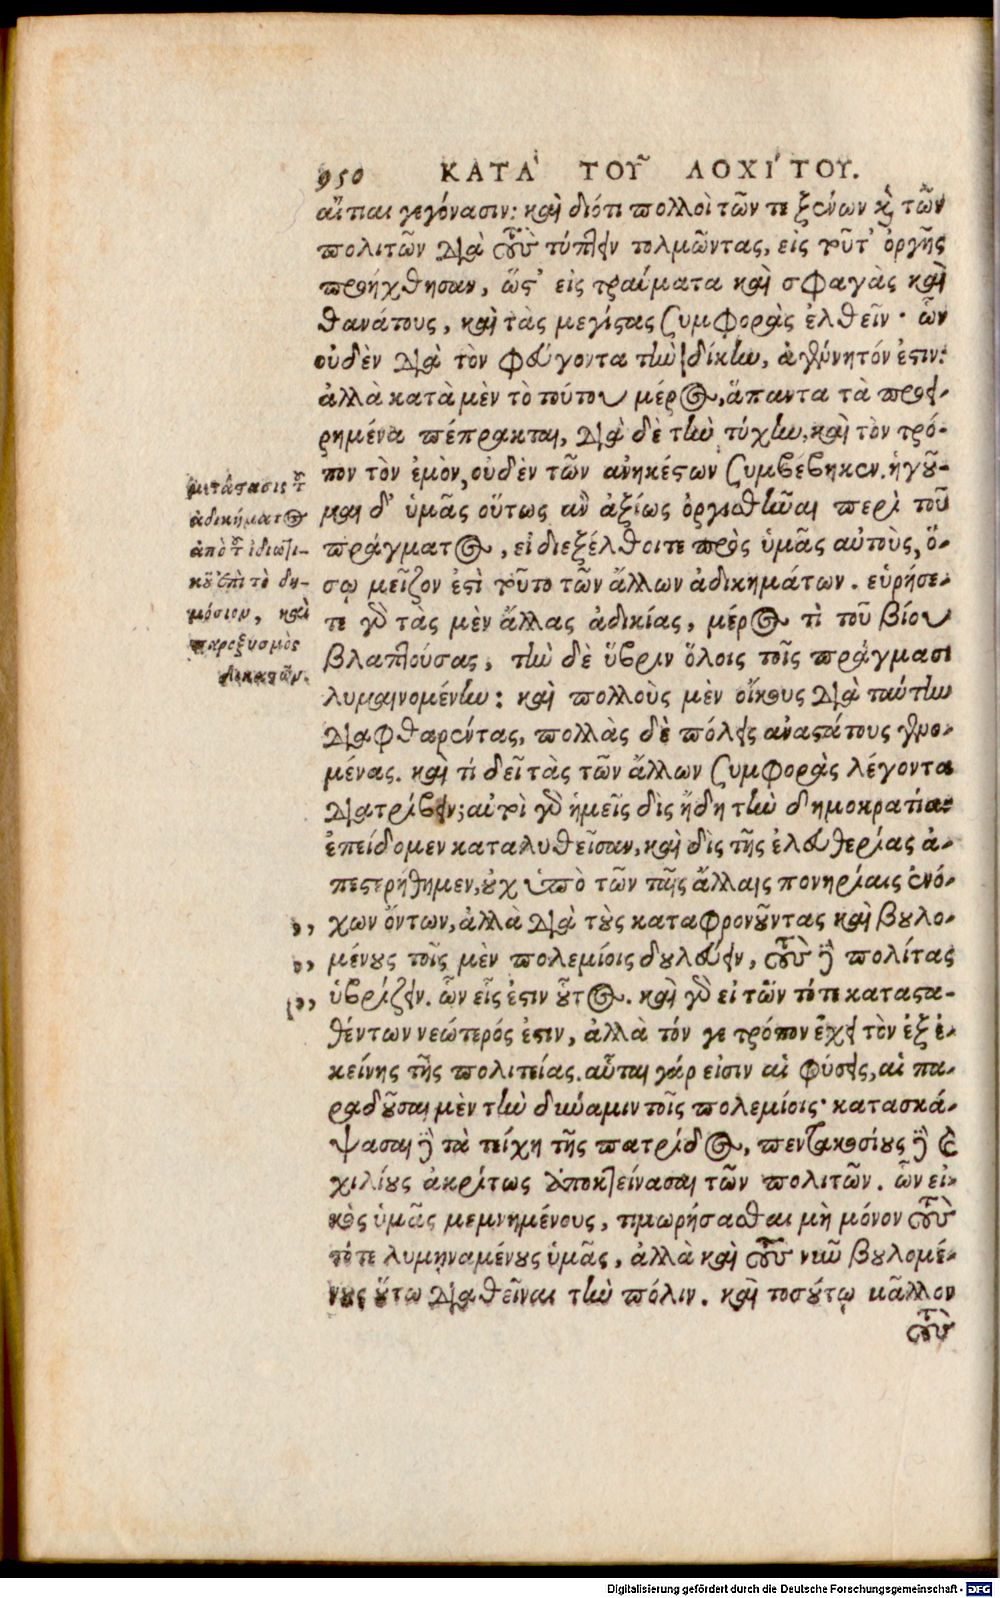 950 ΚΑΤᾺ ΤΟΥ͂ ΛΟΧΊΤΟΥ.
αἴτιαι γεγόνασιν: καὶ διότι πολλοὶ τῶν τε ξένων καὶ τῶν
πολιτῶν διὰ τοὺς τύπτειν τολμῶντας, εἰς τοῦτ' ὀργῆς
προήχθησαν, ὥστ' εἰς τραύματα καὶ σφαγὰς καὶ
θανάτους, καὶ τὰς μεγίστας συμφορὰς ἐλθεῖν· ὧν
οὐδὲν διὰ τὸν φεύγοντα τὴν δίκην, ἀγένητόν ἐστιν:
ἀλλὰ κατὰ μὲν τὸ τούτου μέρος, ἅπαντα τὰ προει-
ρημένα πέπρακται, διὰ δὲ τὴν τύχην, καὶ τὸν τρό-
πον τὸν ἐμὸν, οὐδὲν τῶν ἀνηκέστων συμβέβηκεν. ἡγοῦ-
μαι δ' ὑμᾶς οὕτως ἂν ἀξίως ὀργισθῆναι περὶ τοῦ
πράγματος, εἰ διεξέλθοιτε πρὸς ὑμᾶς αὐτοὺς, ὅ-
σῳ μεῖζον ἐστὶ τοῦτο τῶν ἄλλων ἀδικημάτων. εὑρήσε-
τε γὰρ τὰς μὲν ἄλλας ἀδικίας, μέρος τὶ τοῦ βίου
βλαπτούσας, τὴν δὲ ὕβριν ὅλοις τοῖς πράγμασι
λυμαινομένην: καὶ πολλοὺς μὲν οἴκους διὰ ταύτην
διαφθαρέντας, πολλὰς δὲ πόλεις ἀναστάτους γενο-
μένας. καὶ τί δεῖ τὰς τῶν ἄλλων συμφορὰς λέγοντα
διατρίβειν; αὐτοὶ γὰρ ἡμεῖς δὶς ἤδη τὴν δημοκρατίαν
ἐπείδομεν καταλυθεῖσαν, καὶ δὶς τῆς ἐλευθερίας ἀ-
πεστερήθημεν, οὐχ ὑπὸ τῶν ταῖς ἄλλαις πονηρίαις ἐνό-
χων ὄντων, ἀλλὰ διὰ τοὺς καταφρονοῦντας καὶ βουλο-
μένους τοῖς μὲν πολεμίοις δουλεύειν, τοὺς δὲ πολίτας
ὑβρίζειν. ὧν εἷς ἐστιν οὗτος. καὶ γὰρ εἰ τῶν τότε κατασta-
θέντων νεώτερός ἐστιν, ἀλλὰ τόν γε τρόπον ἔχει τὸν ἐξ ἐ-
κείνης τῆς πολιτείας. αὗται γάρ εἰσιν αἱ φύσεις, αἱ πα-
ραδοῦσαι μὲν τὴν δύναμιν τοῖς πολεμίοις· κατασκά-
ψασαι δὲ τὰ τείχη τῆς πατρίδος, πεντακοσίους δὲ καὶ
χιλίους ἀκρίτως ἀποκτείνασαι τῶν πολιτῶν. ὧν εἰ-
κὸς ὑμᾶς μεμνημένους, τιμωρήσασθαι μὴ μόνον τοὺς
τότε λυμηναμένους ὑμᾶς, ἀλλὰ καὶ τοὺς νῦν βουλομέ-
νους οὕτω διαθεῖναι τὴν πόλιν. καὶ τοσούτῳ μᾶλλον
τοὺς
μετάστασις τοῦ
ἀδικήματος
ἀπὸ τοῦ ἰδιωτι-
κοῦ ἐπὶ τὸ δη-
μόσιον, καὶ
παροξυσμὸς
δικαστῶν.
Digitalisierung gefördert durch die Deutsche Forschungsgemeinschaft - DFG